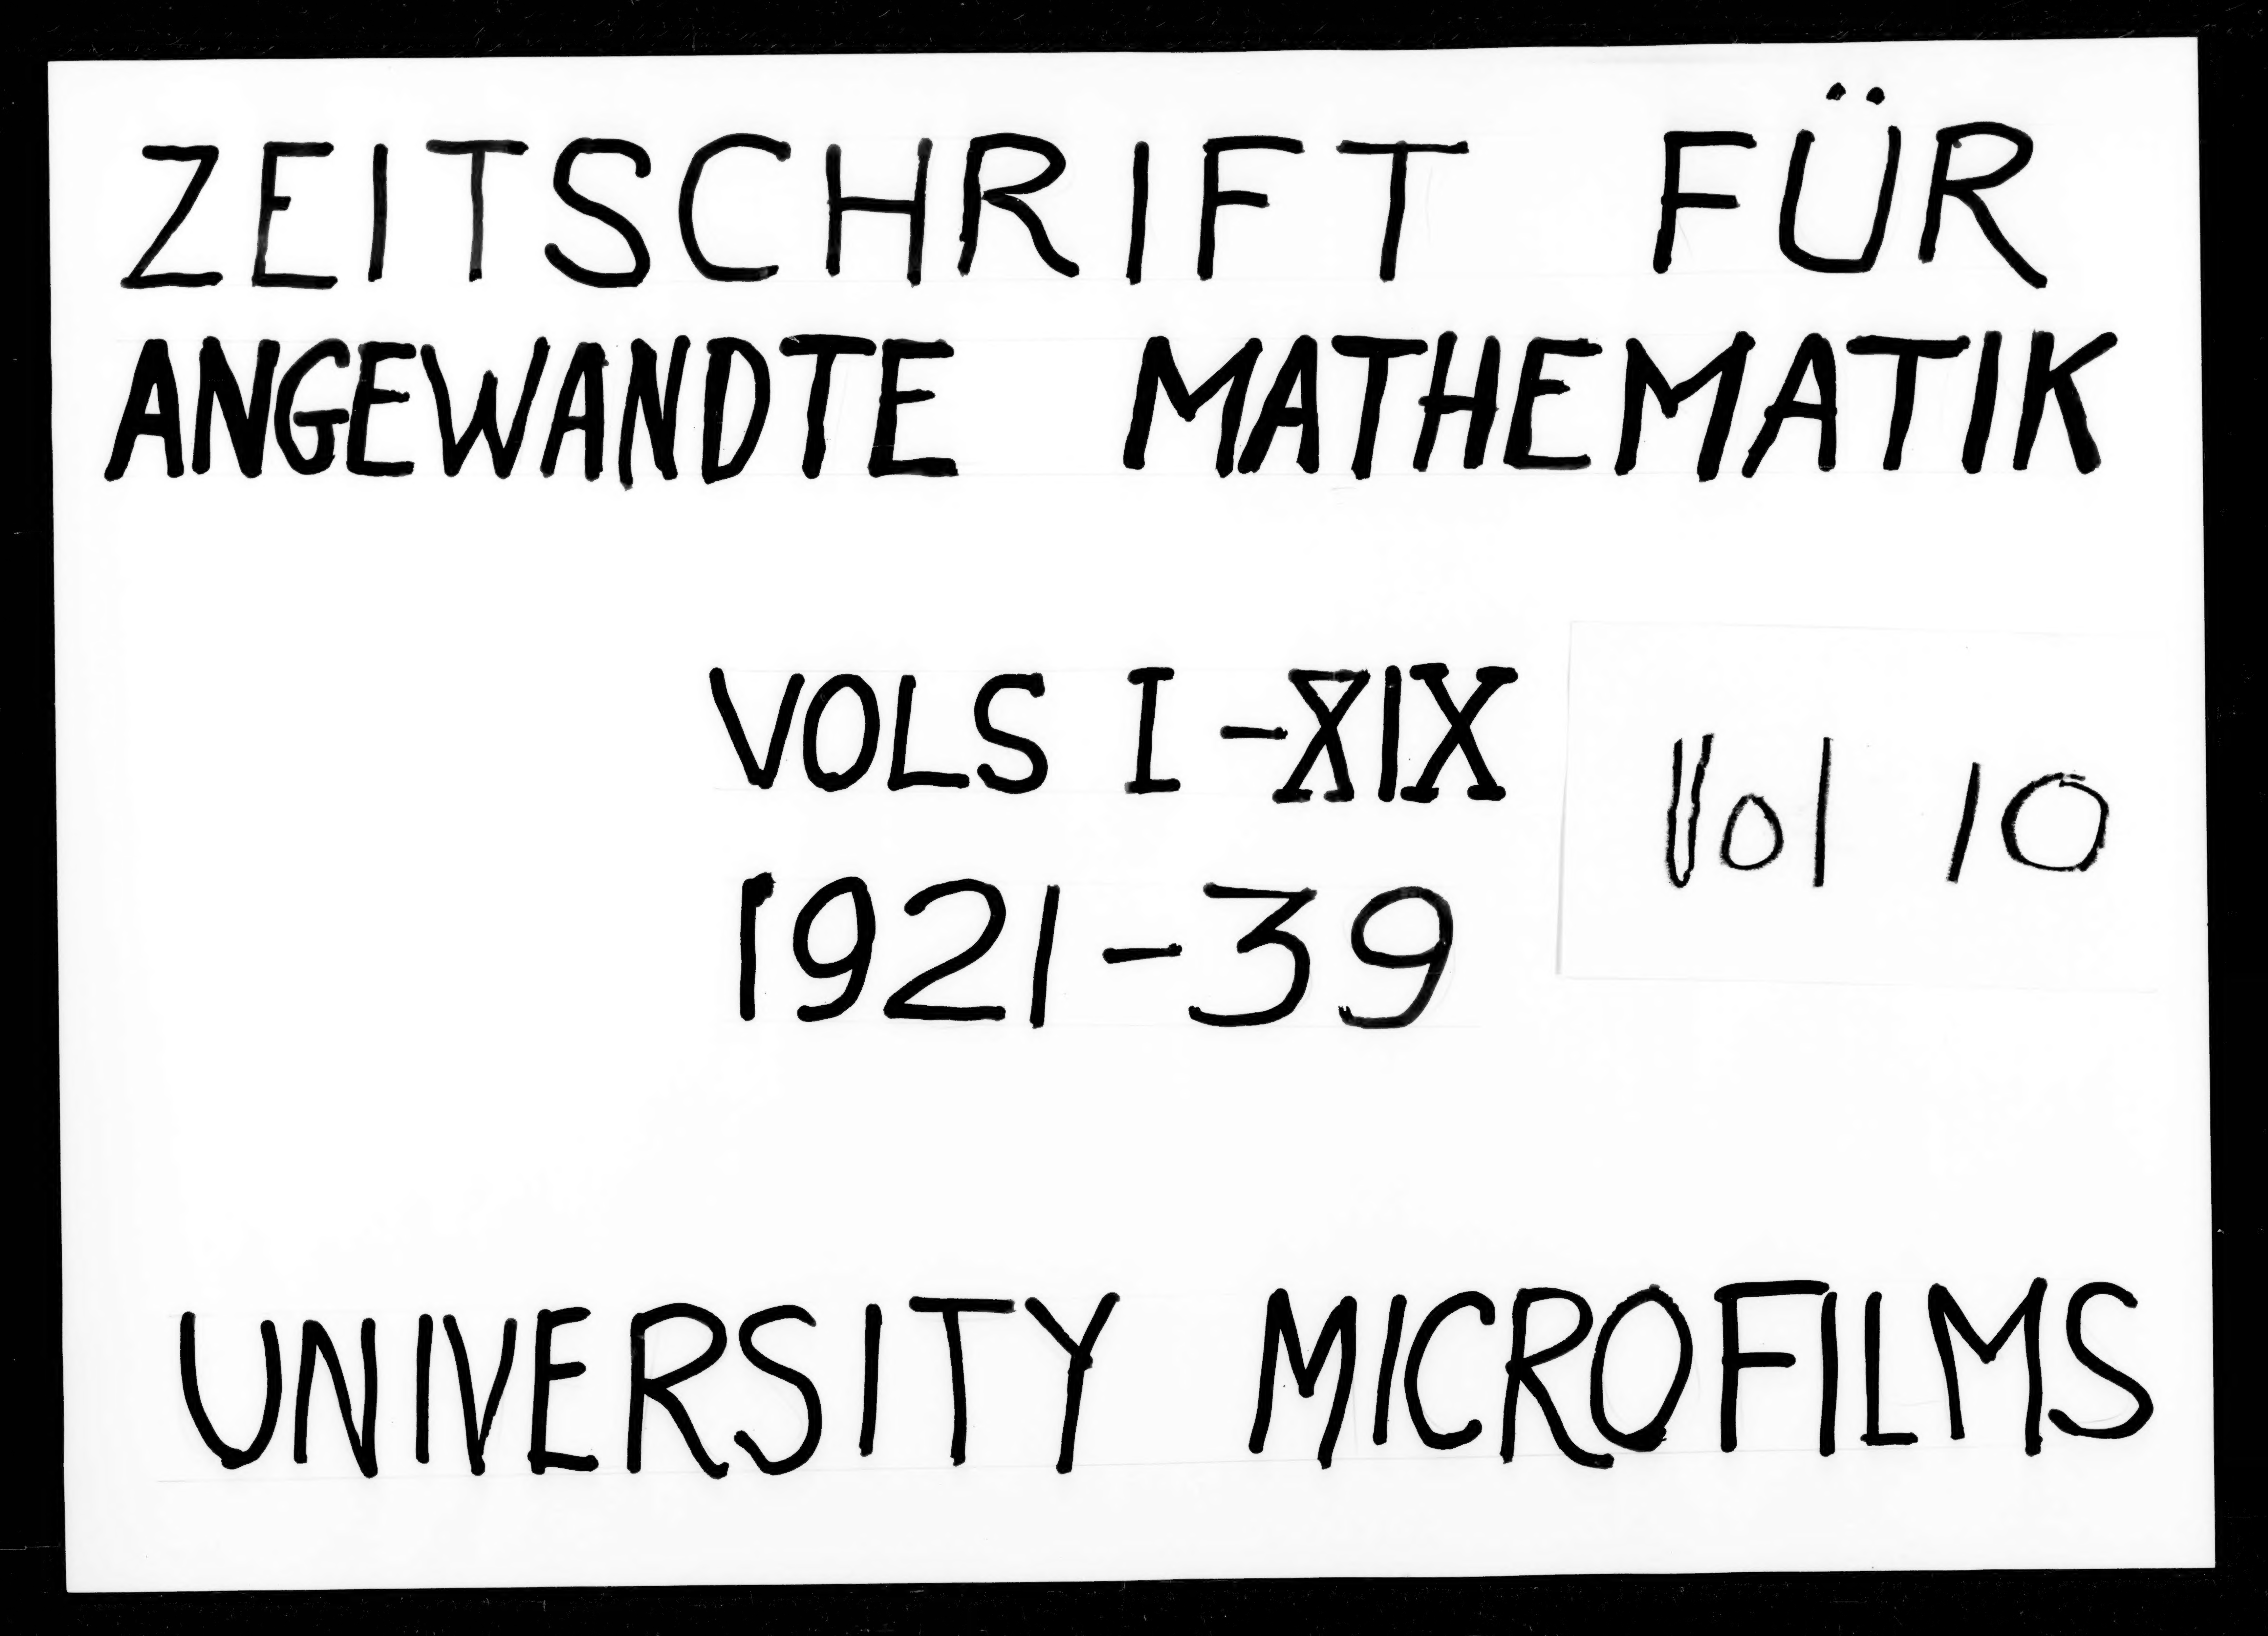 ZEITSCHRIFT FÜR
ANGEWANDTE MATHEMATIK
VOLS I-XIX
Vol 10
1921-39
UNIVERSITY MICROFILMS